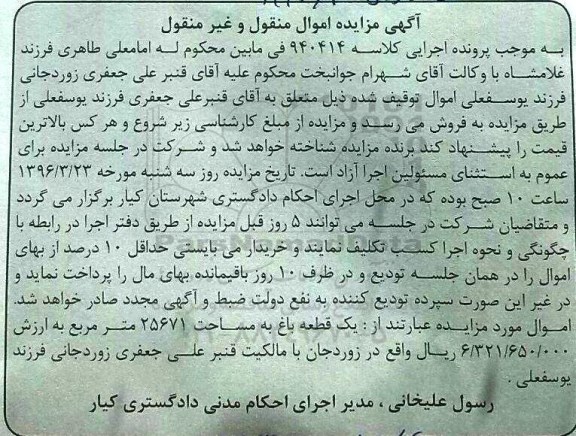 آگهی مزایده اموال منقول و غیر منقول
به موجب پرونده اجرایی کلاسه ۹۴۰۴۱۴ فی مابین محکوم له امامعلی طاهری فرزند
غلامشاه با وکالت آقای شهرام جوانبخت محکوم علیه آقای قنبر علی جعفری زوردجانی
فرزند یوسفعلی اموال توقیف شده ذیل متعلق به آقای قنبرعلی جعفری فرزند یوسفعلی از
طریق مزایده به فروش می رسد و مزایده از مبلغ کارشناسی زیر شروع و هر کس بالاترین
قیمت را پیشنهاد کند برنده مزایده شناخته خواهد شد و شرکت در جلسه مزایده برای
عموم به استثنای مسئولین اجرا آزاد است. تاریخ مزایده روز سه شنبه مورخه ۱۳۹۶/۳/۲۳
ساعت ۱۰ صبح بوده که در محل اجرای احکام دادگستری شهرستان کیار برگزار می گردد
و متقاضیان شرکت در جلسه می توانند ۵ روز قبل مزایده از طریق دفتر اجرا در رابطه با
چگونگی و نحوه اجرا کسب تکلیف نمایند و خریدار می بایستی حداقل ۱۰ درصد از بهای
اموال را در همان جلسه تودیع و در ظرف ۱۰ روز باقیمانده بهای مال را پرداخت نماید و
در غیر این صورت سپرده تودیع کننده به نفع دولت ضبط و آگهی مجدد صادر خواهد شد.
اموال مورد مزایده عبارتند از : یک قطعه باغ به مساحت ۲۵۶۷۱ متر مربع به ارزش
۶/۳۲۱/۶۵۰/۰۰۰ ریال واقع در زوردجان با مالکیت قنبر علی جعفری زوردجانی فرزند
یوسفعلی .
رسول علیخانی ، مدیر اجرای احکام مدنی دادگستری کیار